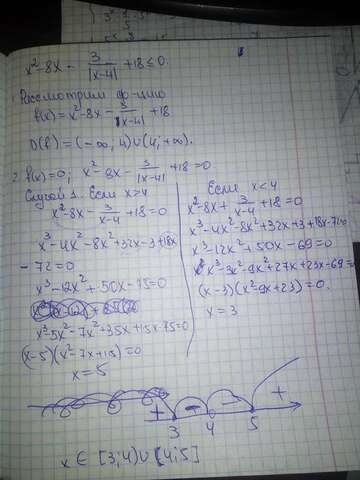 x² - 8x - 3/|x-4| + 18 ≤ 0.
1. Рассмотрим ф-цию
f(x) = x² - 8x - 3/|x-4| + 18
D(f) = (-∞; 4) ∪ (4; +∞).
2. f(x) = 0; x² - 8x - 3/|x-4| + 18 = 0
Случай 1. Если x > 4
x² - 8x - 3/(x-4) + 18 = 0
x³ - 4x² - 8x² + 32x - 3 + 18x
- 72 = 0
x³ - 12x² + 50x - 75 = 0
x³ - 5x² - 7x² + 35x + 15x - 75 = 0
(x-5)(x² - 7x + 15) = 0
x = 5
Если x < 4
x² - 8x + 3/(x-4) + 18 = 0
x³ - 4x² - 8x² + 32x + 3 + 18x - 72 = 0
x³ - 12x² + 50x - 69 = 0
x³ - 3x² - 9x² + 27x + 23x - 69 = 0
(x-3)(x² - 9x + 23) = 0.
x = 3
+ - - +
3 4 5
x ∈ [3; 4) ∪ (4; 5]